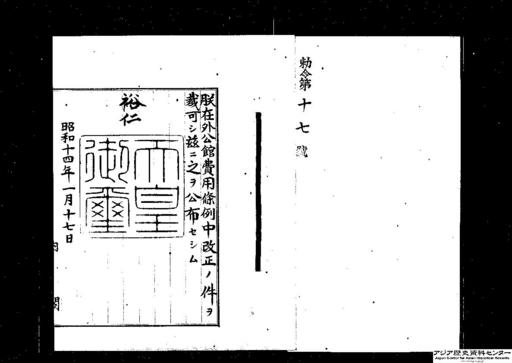 勅令第十七號
朕在外公館費用條例中改正ノ件ヲ
裁可シ玆ニ之ヲ公布セシム
裕仁
天皇
御璽
昭和十四年一月十七日
内閣
アジア歴史資料センター
Japan Center for Asian Historical Records